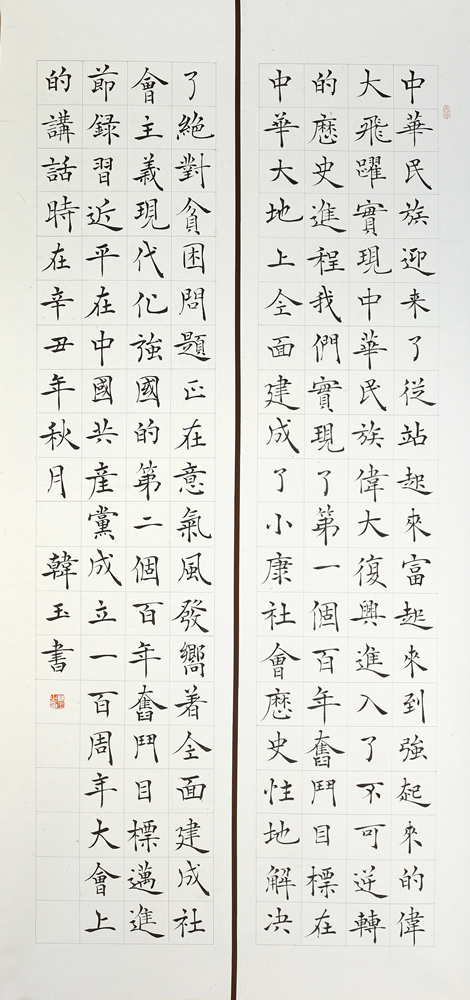 中華民族迎来了從站起來富起來到強起來的偉
大飛躍實現中華民族偉大復興進入了不可逆轉
的歷史進程我們實現了第一個百年奮鬥目標在
中華大地上全面建成了小康社會歷史性地解决
了絕對貧困問題正在意氣風發嚮着全面建成社
會主義現代化強國的第二個百年奮鬥目標邁進
節録習近平在中國共産黨成立一百周年大會上
的講話時在辛丑年秋月 韓玉書